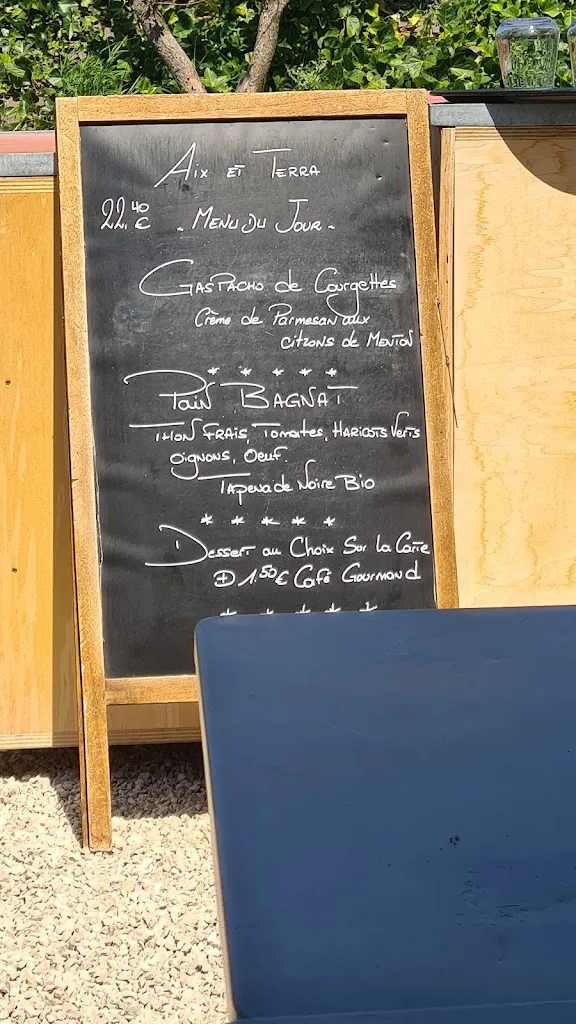 Aix et Terra
22.40 € - Menu du Jour -
Gaspacho de Courgettes
Crème de Parmesan aux
citrons de Menton
* * * * *
Pain Bagnat
Thon frais, Tomates, Haricots Verts
oignons, Oeuf
Tapenade Noire Bio
* * * * *
Dessert au Choix Sur la Carte
1.50€ Café Gourmand
* * * * *